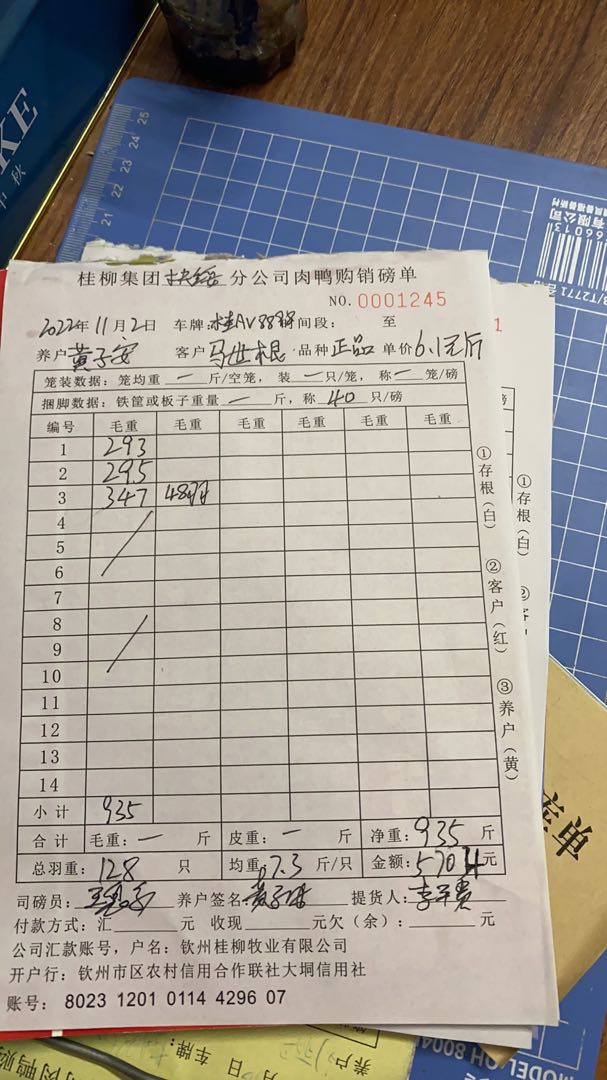 KE
中秋
25
24
23
22
21
桂柳集团 分公司肉鸭购销磅单
NO.0001245
2022年11月2日 车牌:桂AV88 时间段: 至
养户黄子安 客户马世根 品种正品 单价6.1元/斤
笼装数据:笼均重 — 斤/空笼,装 — 只/笼,称 — 笼/磅
捆脚数据:铁筐或板子重量 — 斤,称 40 只/磅
编号 毛重 毛重 毛重 毛重 毛重 毛重
1 293
2 295
3 347 48羽
4
5
6
7
8
9
10
11
12
13
14
小计 935
合计 毛重:— 斤 皮重:— 斤 净重:935 斤
总羽重:128 只 均重:7.3 斤/只 金额:5704元
司磅员: 养户签名: 提货人:
付款方式:汇 元 收现 元欠(余): 元
公司汇款账号,户名:钦州桂柳牧业有限公司
开户行:钦州市区农村信用合作联社大垌信用社
账号:8023 1201 0114 4296 07
①存根(白) ②客户(红) ③养户(黄)
1
①存根(白)
②客户
库单
养户
日 车牌:
肉鸭购